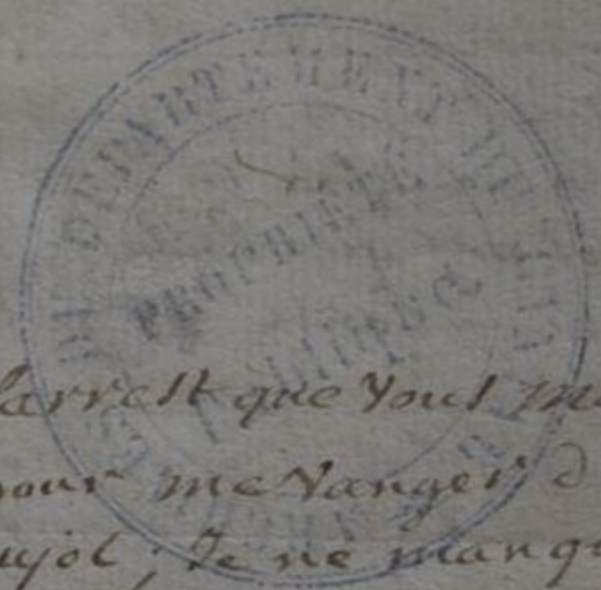 DU DEPARTEMENT DU
PROPRIETE
PUBLIQUE
larrest que Vous me
pour me Vanger d
ujol, Je ne manqu